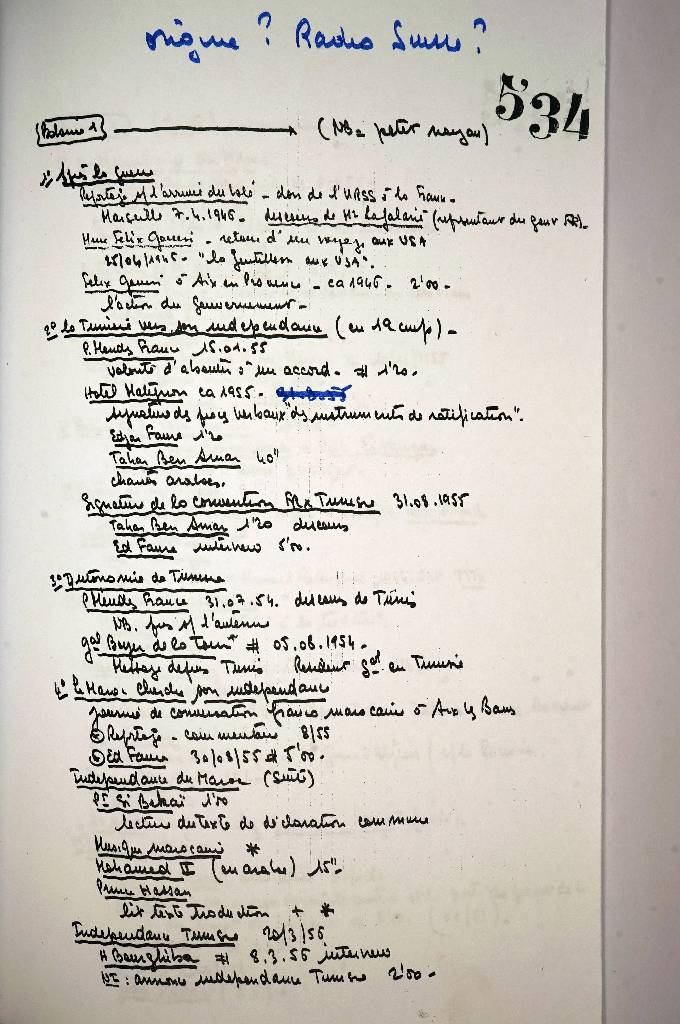 origine ? Radio Suisse ?
534
Bobine 1 → (NB = petit noyau)
1° Après la guerre
Reportage s/ l'arrivée du blé - don de l'URSS à la France -
Marseille 7.4.1946 - discours de Mr (représentant du gouv
Mme Felix Gouin - retour d'un voyage aux USA
25/04/1946 - "la gentillesse aux USA".
Felix Gouin à Aix en Provence - ca 1946 - 2'00 -
l'action du Gouvernement -
2° la Tunisie vers son indépendance (en 19 cm/s) -
P. Mendes France 15.01.55
volonté d'aboutir à un accord - # 1'20 -
Hotel Matignon ca 1955 -
signature des procs verbaux "des instruments de ratification".
Edgar Faure 1'20
Tahar Ben Amar 40"
chants arabes.
Signature de la convention FR x Tunisie 31.08.1955
Tahar Ben Amar 1'20 discours
Ed Faure interview 5'00.
3° Autonomie de Tunisie
P Mendes France 31.07.54. discours de Tunis
NB. pris s/ l'antenne
gal Boyer de la Tour # 05.08.1954 -
Message depuis Tunis Résident Gal en Tunisie
4° le Maroc cherche son indépendance
journée de conversation franco marocaine à Aix les Bains
Reportage - commentaire 8/55
Ed Faure 30/08/55 # 5'00 -
Independance du Maroc (suite)
Pt Si Bekaï 1'00
lecture du texte de déclaration commune
Musique marocaine *
Mohamed V (en arabe) 15"
Prince Hassan
lit texte traduction + *
Independance Tunisie 20/3/56
H Bourghiba # 8.3.56 interview
: annonce independance Tunisie 2'00 -